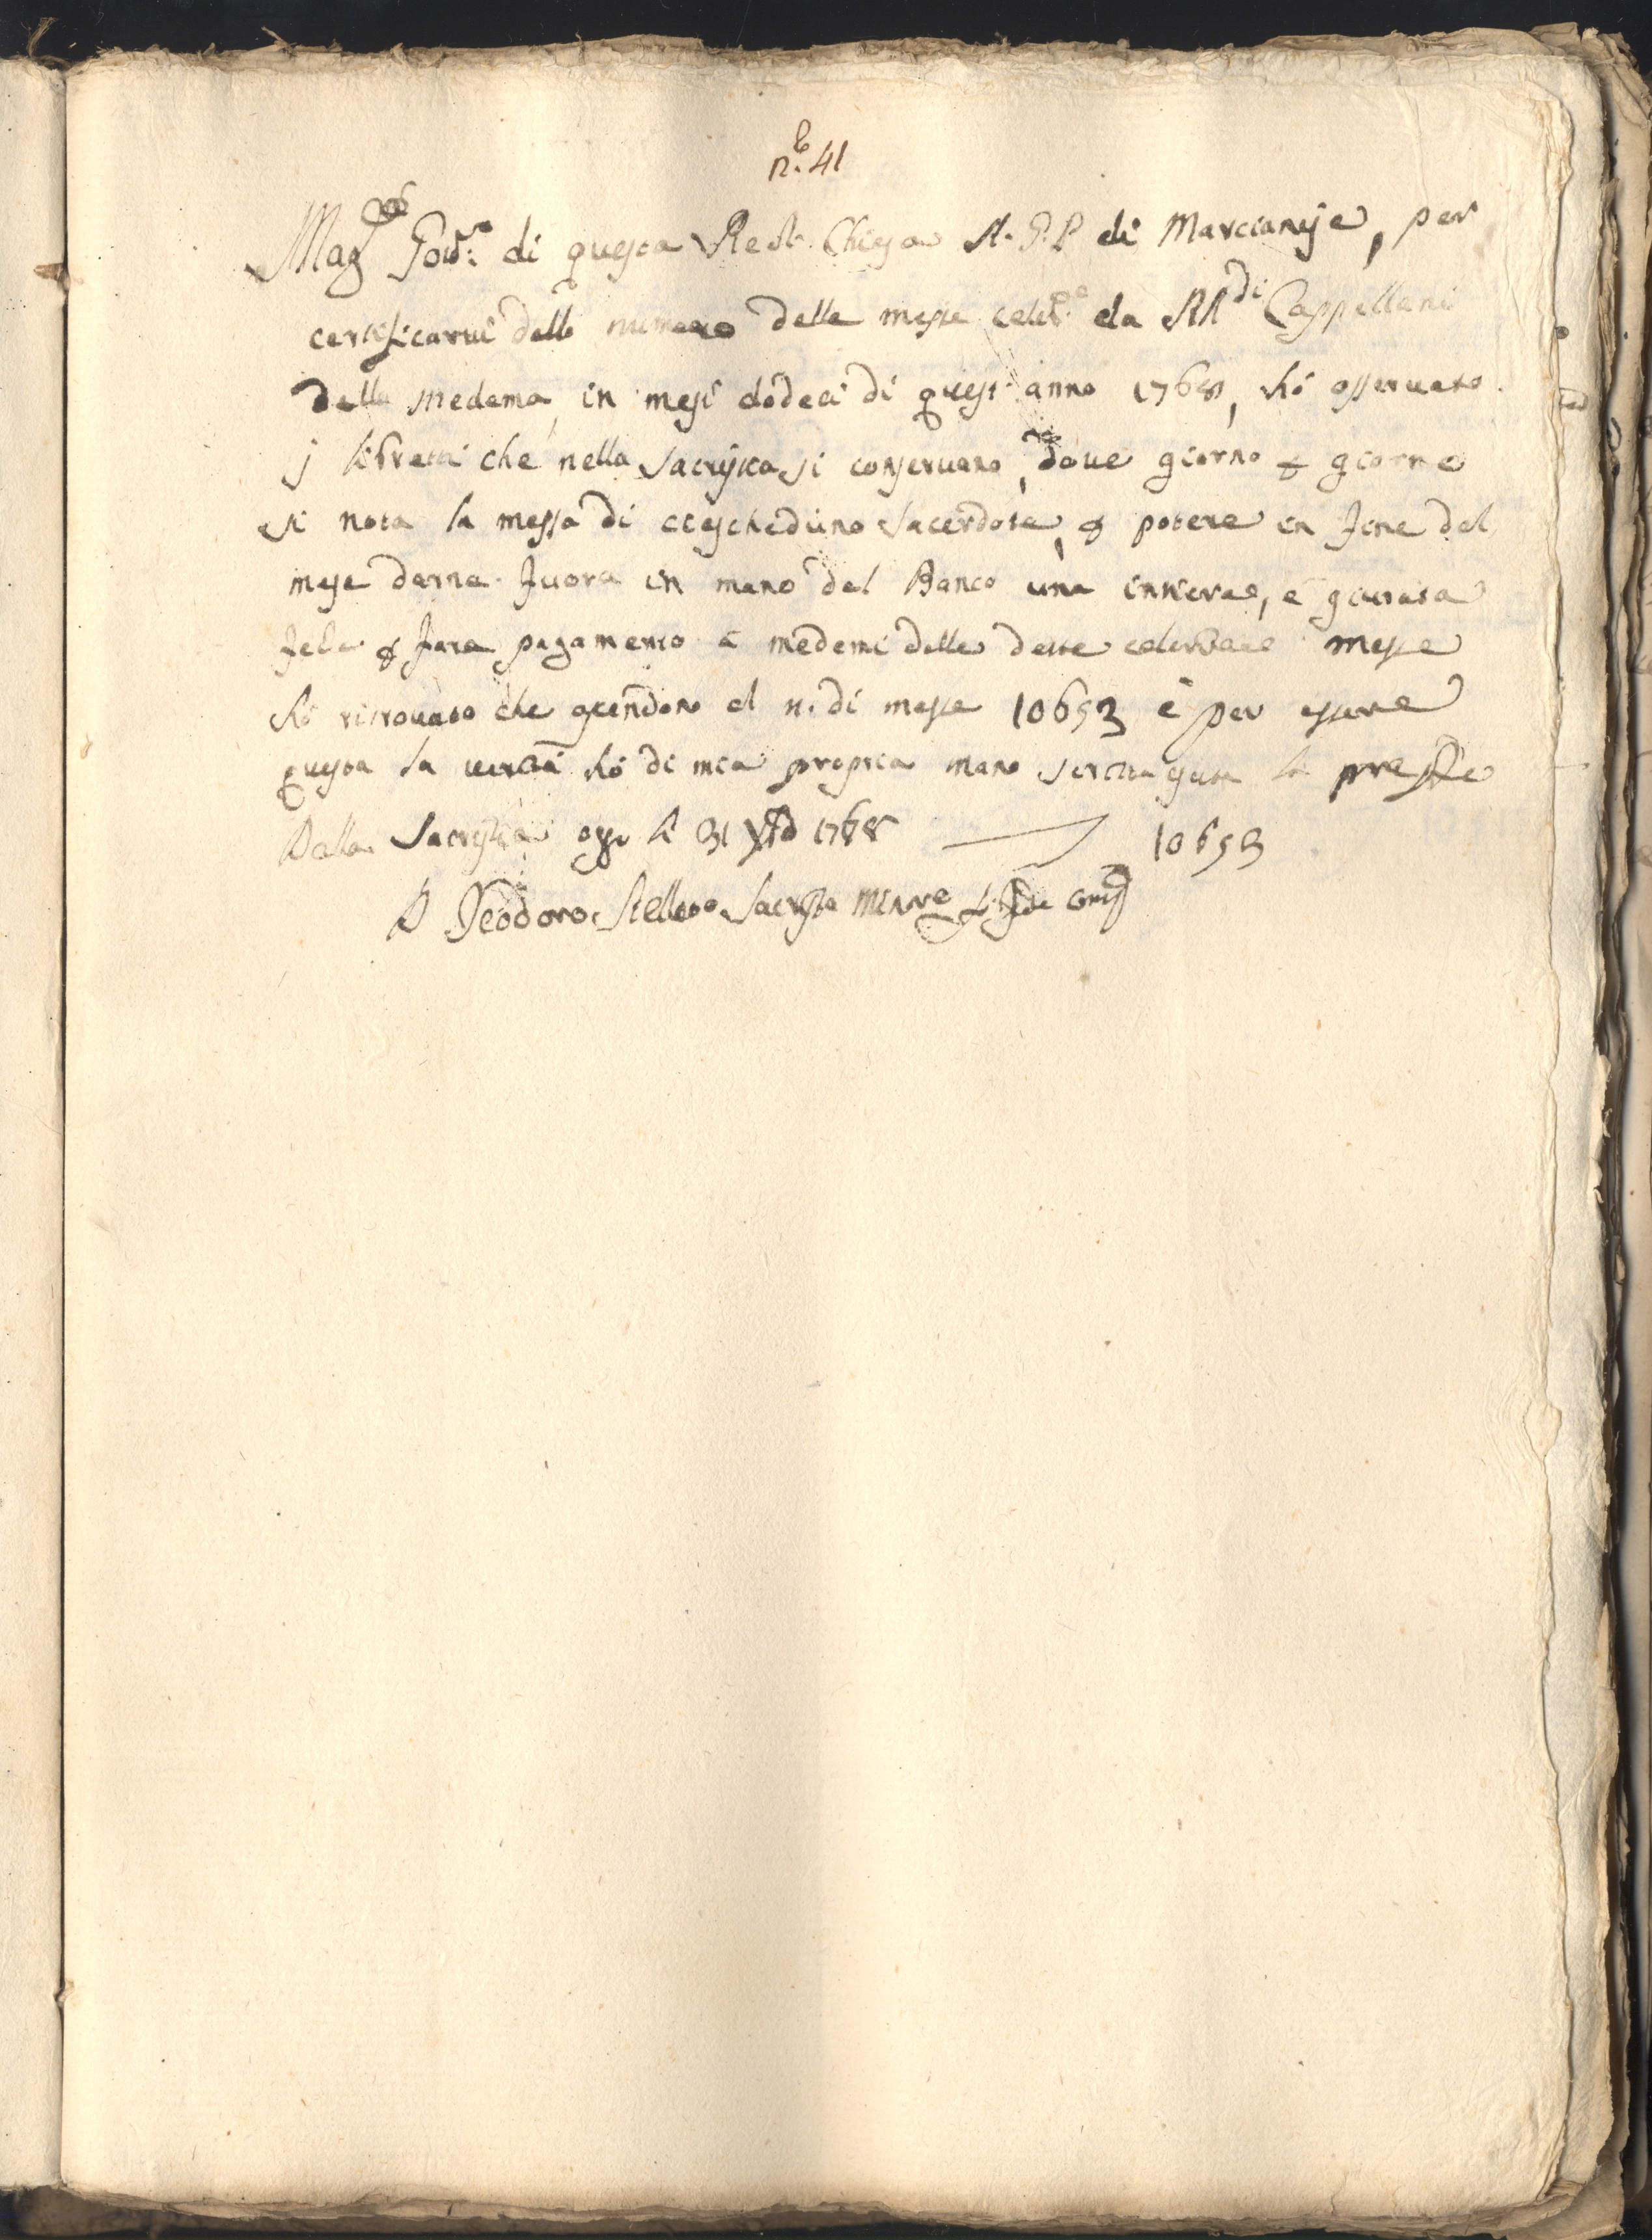 n.º 41
Mag.ci Gov.ri di questa Real Chiesa A. G. P. di Marcianise, per
certificarvi dello numero delle messe celeb.te da RR.di Cappellani
della medema, in mesi dodeci di quest'anno 1768, hò osservato
j libretti che nella Sacristia si conservano, dove giorno p giorno
si nota la messa di ciescheduno Sacerdote, p potere in fine del
mese darne fuora in mano del Banco una intiera, e giurata
fede p fare pagamento à medemi delle dette celebrate messe
hò ritrovato che ascendono al n. di messe 10653 e per essere
questa la verità hò di mia propria mano scritta la pres.te
Dalla Sacristia oggi li 31 Xbre 1768 10653
D Teodoro Stellato Sacrista Minore